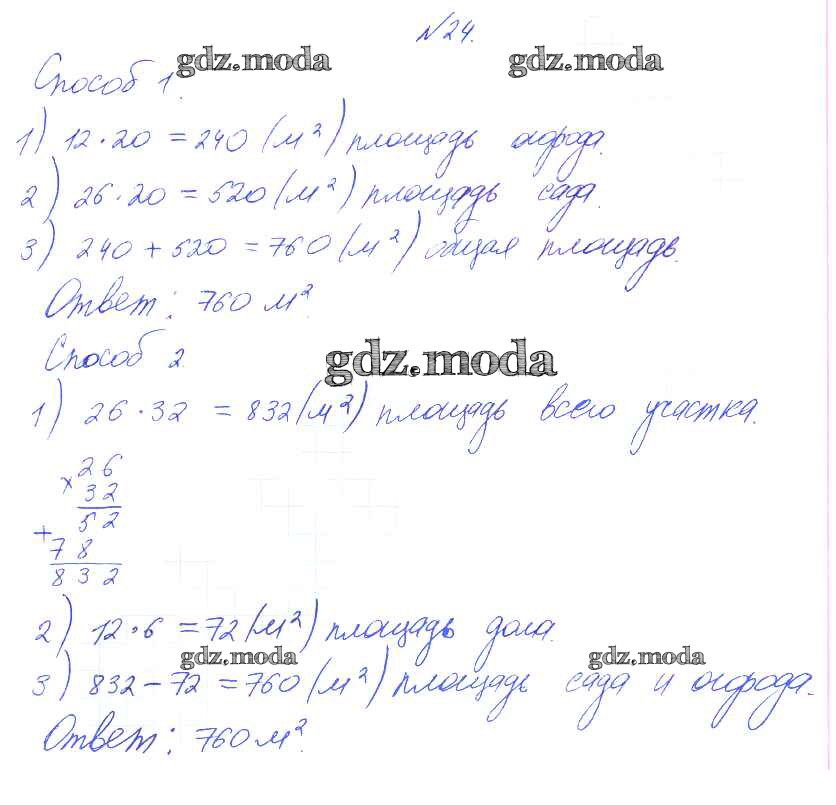 №24.
gdz.moda gdz.moda
Способ 1.
1) 12·20 = 240 (м²) площадь огорода.
2) 26·20 = 520 (м²) площадь сада.
3) 240 + 520 = 760 (м²) общая площадь.
Ответ: 760 м².
Способ 2.
gdz.moda
1) 26·32 = 832 (м²) площадь всего участка.
×26
32
52
+
78
832
2) 12·6 = 72 (м²) площадь дома.
gdz.moda gdz.moda
3) 832 – 72 = 760 (м²) площадь сада и огорода.
Ответ: 760 м².